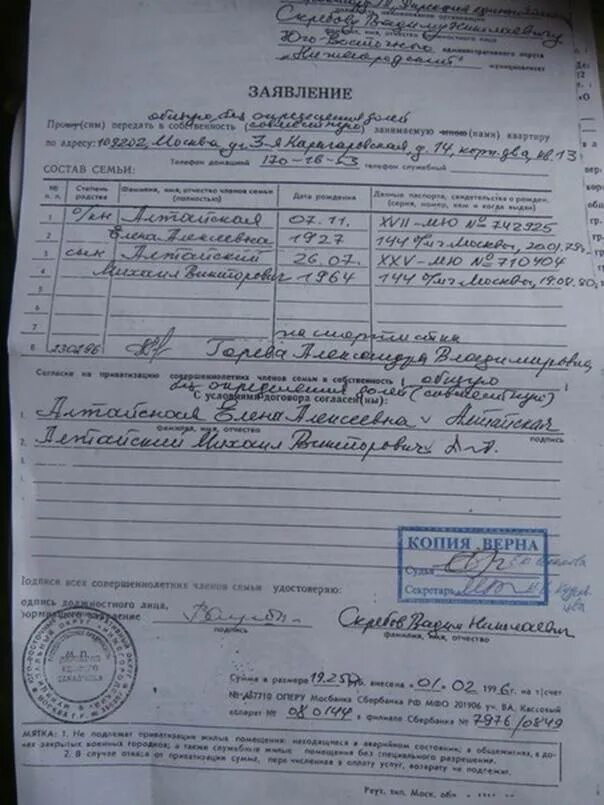 Скребову Вадиму Николаевичу
фамилия, имя, отчество должностного лица
Юго-Восточный административного округа
"Нижегородский" муниципального
ЗАЯВЛЕНИЕ
общую, без определения долей
Прошу(сим) передать в собственность (совместную) занимаемую мною (нами) квартиру
по адресу: 109202, Москва, ул. 3-я Карачаровская д. 14, корп. два, кв. 13
Телефон домашний 170-16-53 телефон служебный
СОСТАВ СЕМЬИ:
№ п. п. Степень родства Фамилия, имя, отчество членов семьи (полностью) Дата рождения Данные паспорта, свидетельства о рожден. (серия, номер, кем и когда выдан)
1 о/кн Алтайская 07.11. XVII-МЮ № 742925
2 Елена Алексеевна 1927 144 о/м г Москвы, 20.01.78г.
3 сын Алтайский 26.07. XXV-МЮ № 710904
4 Михаил Викторович 1964 144 о/м г Москвы, 19.08.80г.
5
6
7 паспортистка
8 230296 Горева Александра Владимировна
Согласие на приватизацию совершеннолетних членов семьи в собственность ( общую
без определения долей (совместную) )
С условиями договора согласен(ны):
1. Алтайская Елена Алексеевна Алтайская
фамилия, имя, отчество подпись
2. Алтайский Михаил Викторович
КОПИЯ ВЕРНА
Судья
Секретарь
Подписи всех совершеннолетних членов семьи удостоверяю:
подпись должностного лица,
подпись
Скребов Вадим Николаевич
фамилия, имя, отчество
Сумма в размере внесена "01" 02 1996г. на т/счет
№ 467710 ОПЕРУ Мосбанка Сбербанка РФ МФО 201906 уч. ВА, Кассовый
аппарат № 080144 в филиале Сбербанка № 7976/0849
МЯТКА: 1. Не подлежат приватизации жилые помещения: находящиеся в аварийном состоянии; в общежитиях, в до-
мах закрытых военных городков; а также служебные жилые помещения без специального разрешения.
2. В случае отказа от приватизации сумма, перечисленная в оплату услуг, возврату не подлежит.
Реут. тип. Моск. обл.